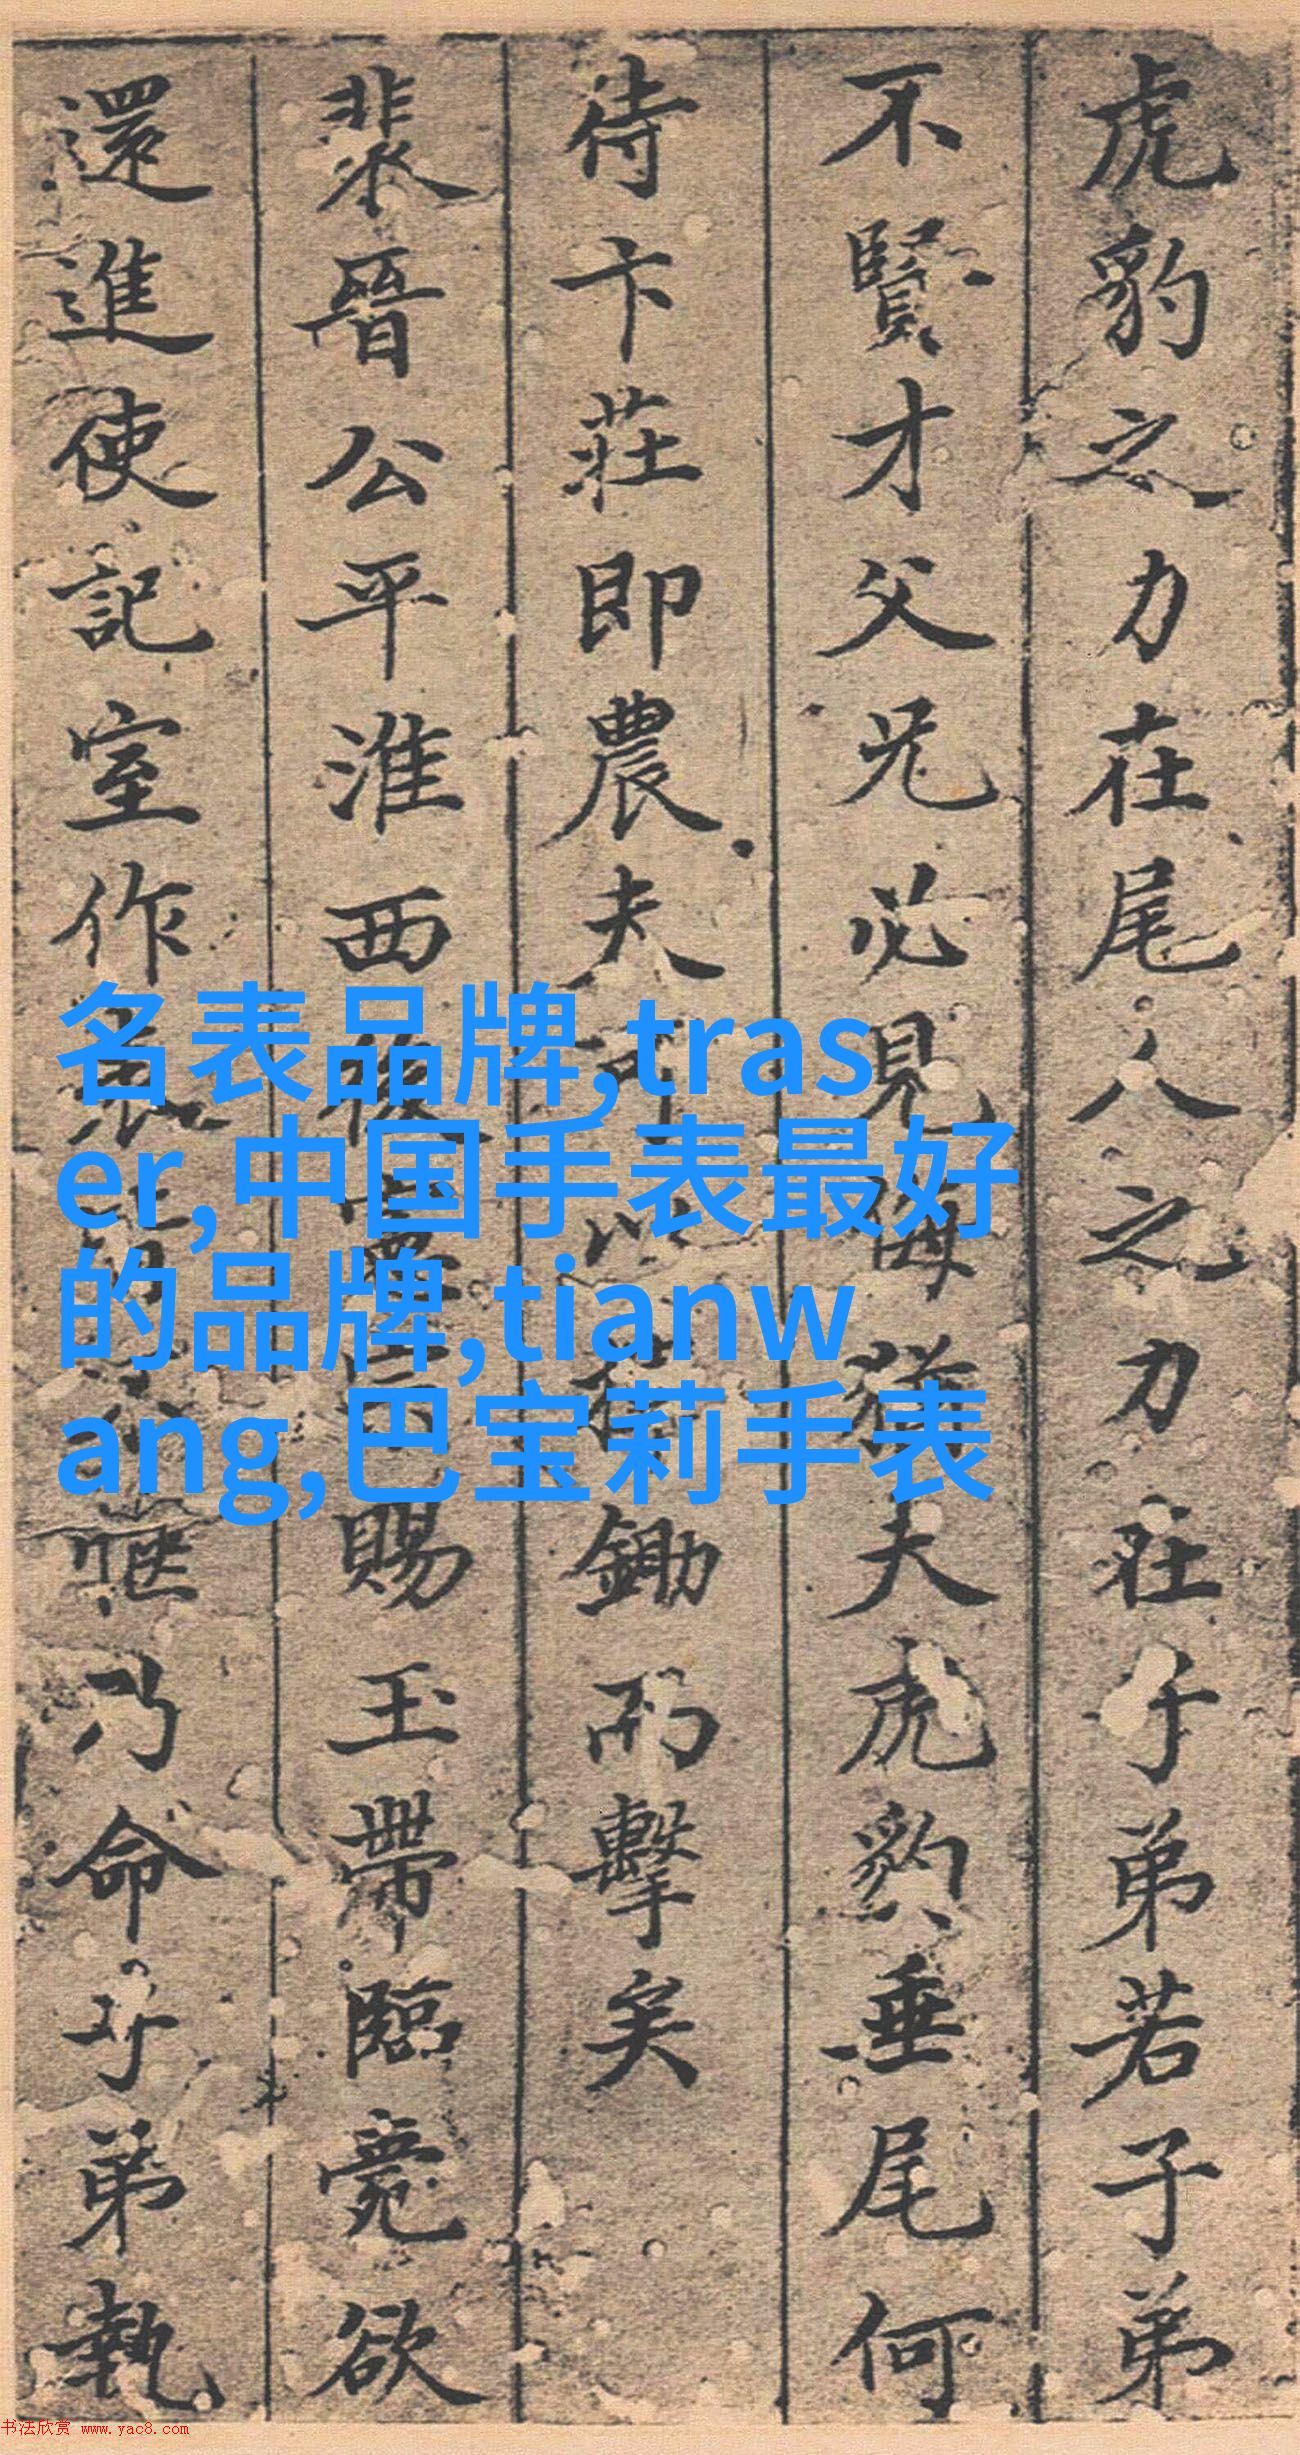 虎豹之力在尾人之力在子弟若子弟
不賢才父兄必見侮夫虎豹垂尾何
待卞莊即農夫可以鋤而擊矣
裴晉公平淮西後憲宗賜玉帶臨薨欲
還進使記室作表皆不愜乃命子弟執
名表品牌,tras
er,中国手表最好
的品牌,tianw
ang,巴宝莉手表
书法欣赏 www.yac8.com